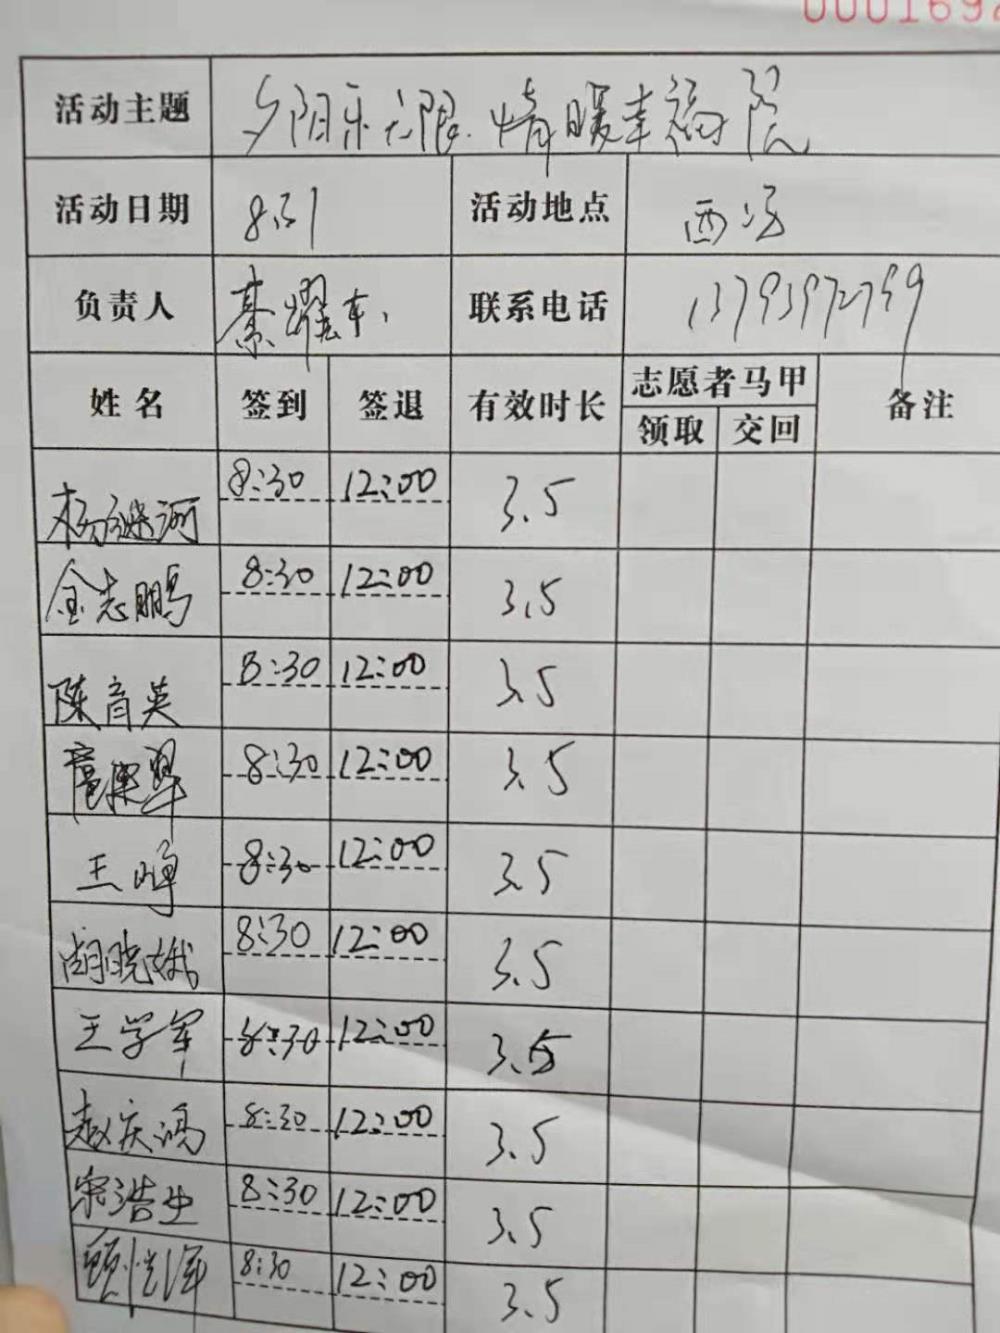 活动主题 夕阳乐无限 情暖幸福院
活动日期 8.31 活动地点 西冯
负责人 綦耀车 联系电话 13793972799
姓名 签到 签退 有效时长 志愿者马甲 备注
领取 交回
杨继河 8:30 12:00 3.5
金志鹏 8:30 12:00 3.5
陈育英 8:30 12:00 3.5
8:30 12:00 3.5
王峰 8:30 12:00 3.5
胡晓娥 8:30 12:00 3.5
王学军 8:30 12:00 3.5
赵庆鸿 8:30 12:00 3.5
宋浩生 8:30 12:00 3.5
8:30 12:00 3.5